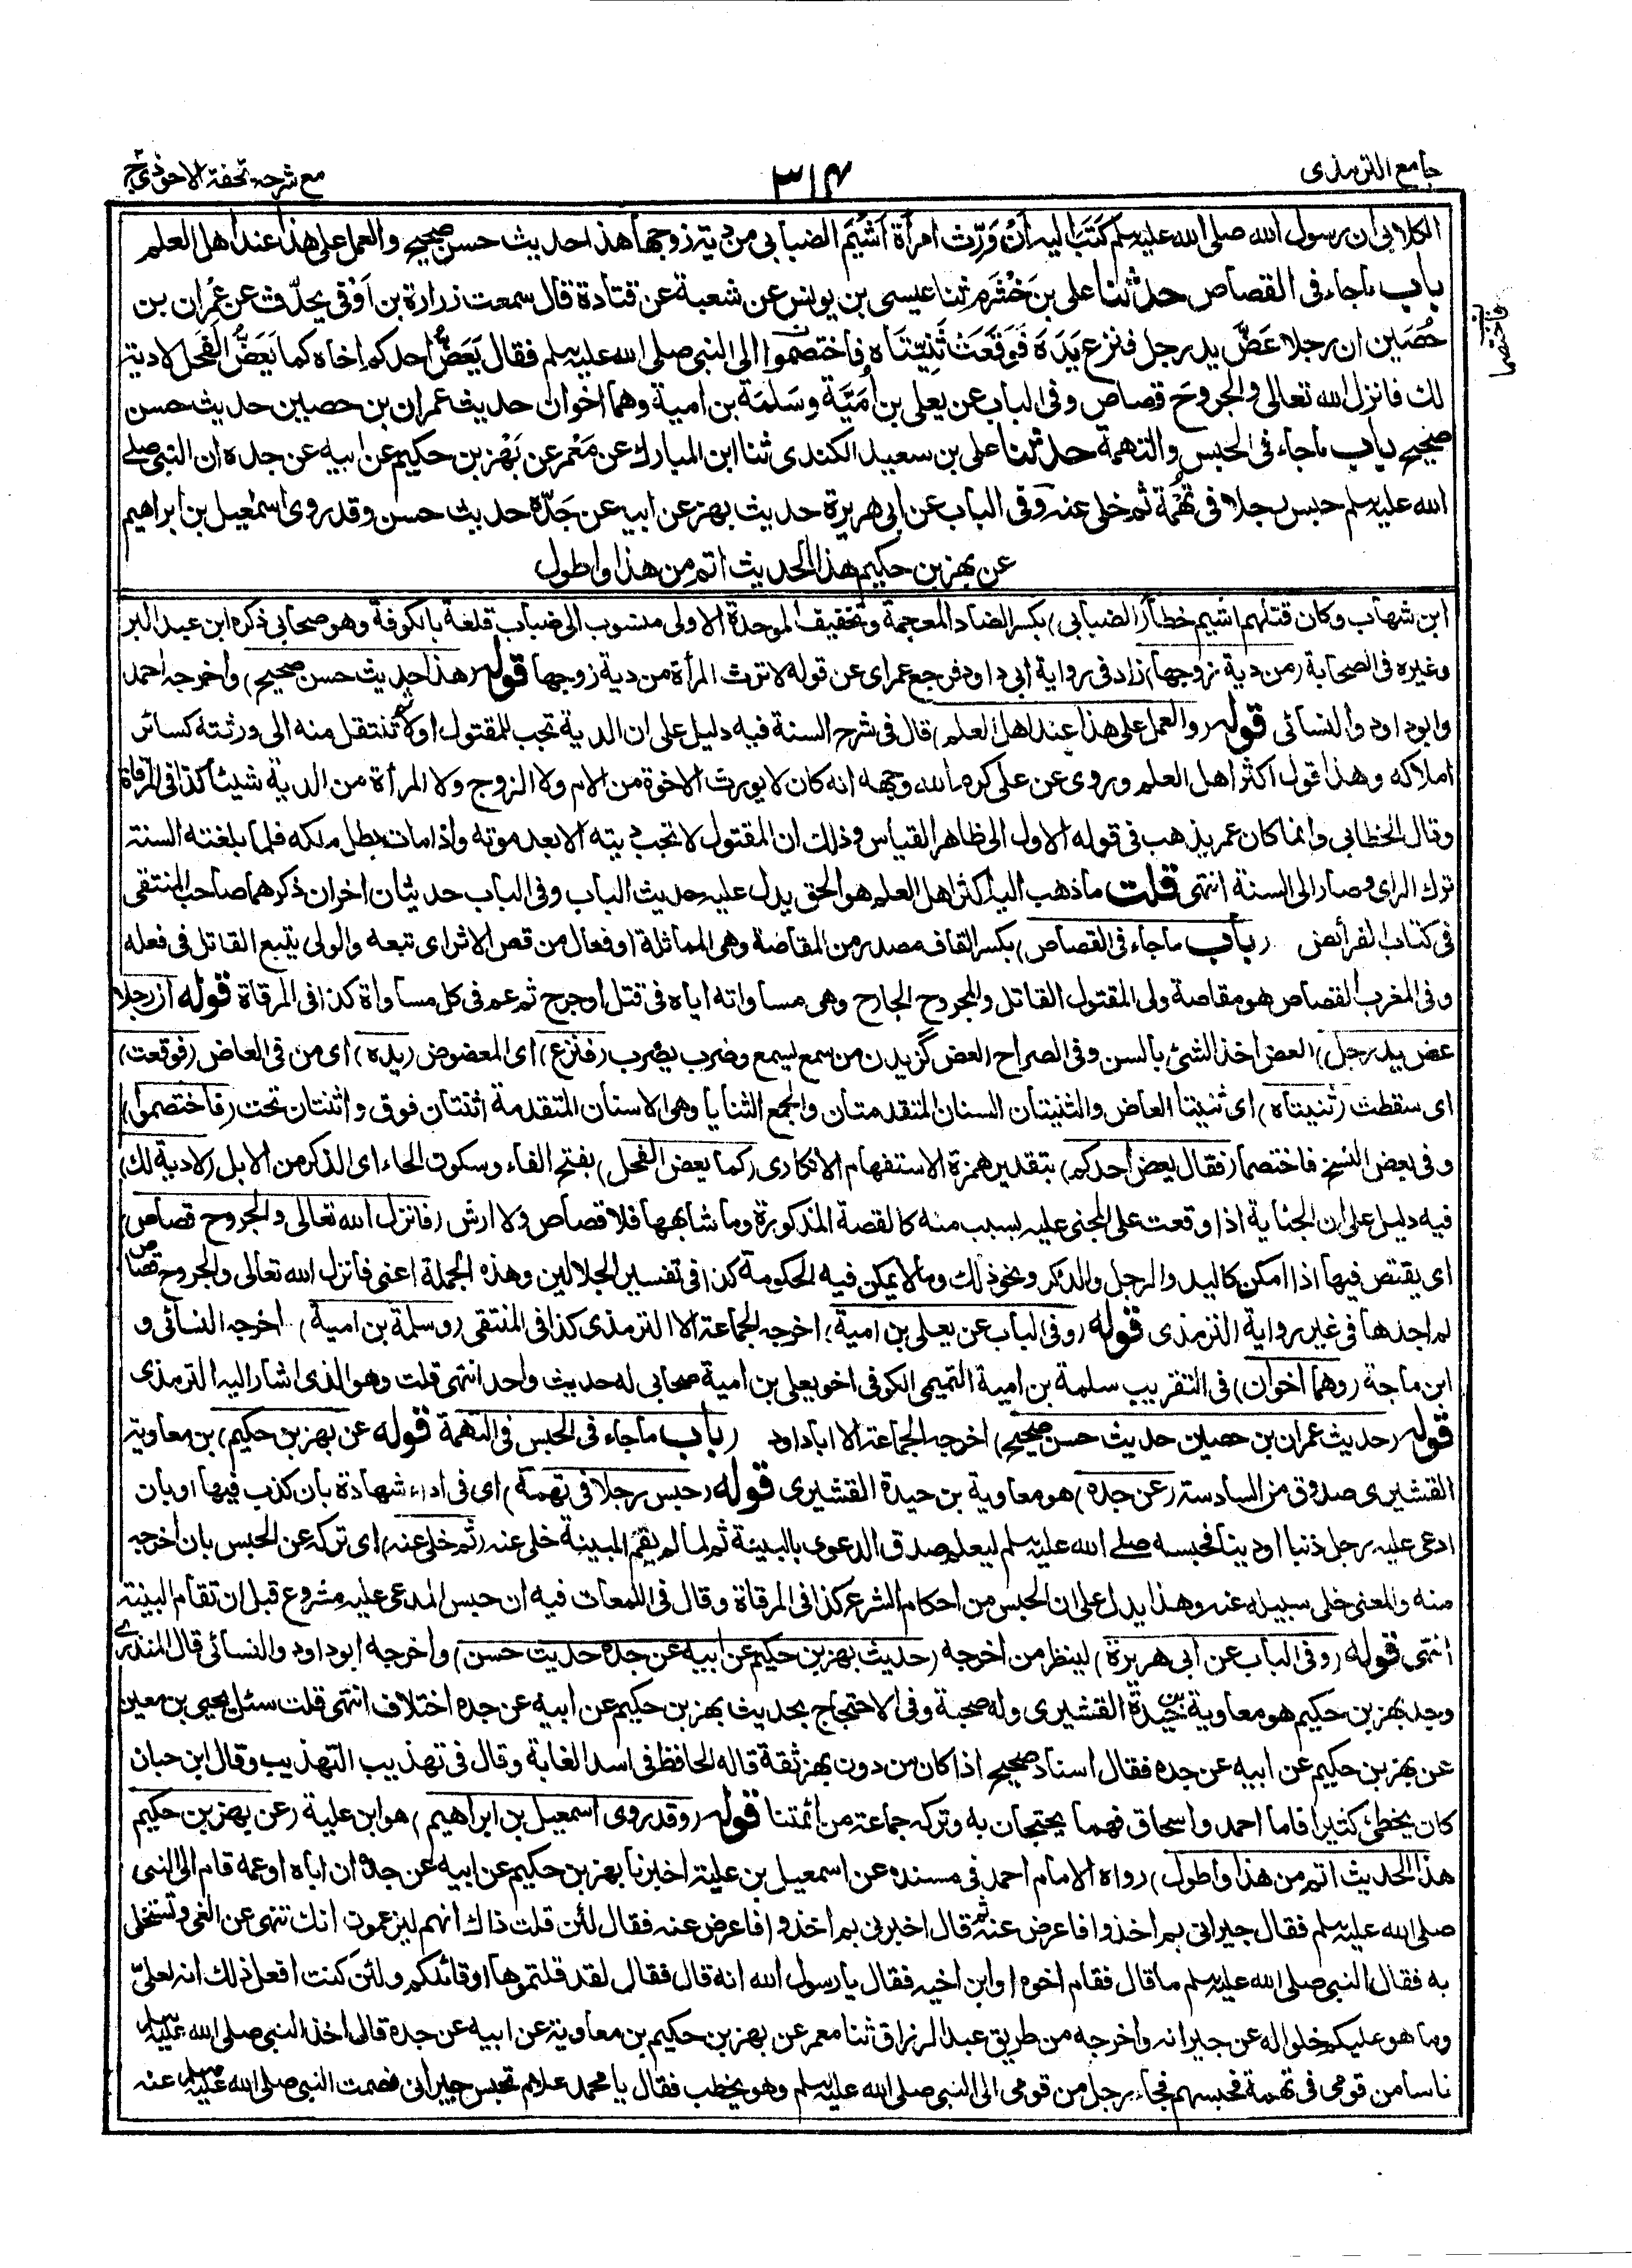 جامع الترمذی
٣١٤
مع شرحہ تحفة الاحوذی ج٢
الکلابی ان رسول اللہ صلی اللہ علیہ وسلم کَتَبَ الیہ اَنْ وَرِّث امرأة اَشْیَم الضبابی من دیة زوجها هذا حدیث حسن صحیح والعمل علی هذا عند اهل العلم
باب ماجاء فی القصاص حدثنا علی بن خَشْرَم ثنا عیسی بن یونس عن شعبة عن قتادة قال سمعت زرارة بن اَوْفی یحدّث عن عمران بن
حُصَین ان رجلا عَضَّ ید رجل فنزع یَدَہ فَوَقَعَتْ ثَنِیّتَاہ فاختصموا الی النبی صلی اللہ علیہ وسلم فقال یَعَضُّ احدکم اخاہ کما یَعَضُّ الفَحل لا دیة
لك فانزل اللہ تعالی والجروحَ قصاص وفی الباب عن یعلی بن اُمَیَّة وسَلَمَة بن امیة وهما اخوان حدیث عمران بن حصین حدیث حسن
صحیح باب ماجاء فی الحبس والتهمة حدثنا علی بن سعید الکندی ثنا ابن المبارك عن مَعْمر عن بَهْز بن حکیم عن ابیه عن جدہ ان النبی صلی
اللہ علیہ وسلم حبس رجلا فی تُهْمَة ثم خلی عنه وفی الباب عن ابی هریرة حدیث بهز عن ابیه عن جَدّہ حدیث حسن وقد روی اسمٰعیل بن ابراهیم
عن بهز بن حکیم هذا الحدیث اتم من هذا واطول
فاختصما
ابن شهاب وکان قتلهم اشیم خطأ (الضبابی) بکسر الضاد المعجمة وتخفیف الموحدة الاولی منسوب الی ضباب قلعة بالکوفة وهو صحابی ذکرہ ابن عبد البر
وغیرہ فی الصحابة (من دیة زوجها) زاد فی روایة ابی داود فرجع عمر ای عن قوله لا ترث المرأة من دیة زوجها قوله (هذا حدیث حسن صحیح) واخرجه احمد
وابو داود والنسائی قوله (والعمل علی هذا عند اهل العلم) قال فی شرح السنة فیه دلیل علی ان الدیة تجب للمقتول اولا ثم تنتقل منه الی ورثته کسائر
املاکه وهذا قول اکثر اهل العلم وروی عن علی کرم اللہ وجهه انه کان لا یورث الاخوة من الام ولا الزوج ولا المرأة من الدیة شیئا کذا فی المرقاة
وقال الخطابی وانما کان عمر یذهب فی قوله الاول الی ظاهر القیاس وذلك ان المقتول لا تجب دیته الا بعد موته واذا مات بطل ملکه فلما بلغته السنة
ترك الرای وصار الی السنة انتهی قلت ما ذهب الیه اکثر اهل العلم هو الحق یدل علیه حدیث الباب وفی الباب حدیثان اخران ذکرهما صاحب المنتقی
فی کتاب الفرائض (باب ماجاء فی القصاص) بکسر القاف مصدر من المقاصة وهی المماثلة او فعال من قص الاثر ای تبعه والولی یتبع القاتل فی فعله
وفی المغرب القصاص هو مقاصة ولی المقتول القاتل والمجروح الجارح وهی مساواته ایاہ فی قتل او جرح ثم عم فی کل مساواة کذا فی المرقاة قوله (ان رجلا
عض ید رجل) العض اخذ الشئ بالسن وفی الصراح العض گزیدن من سمع یسمع وضرب یضرب (فنزع) ای المعضوض (یدہ) ای من فی العاض (فوقعت)
ای سقطت (ثنیتاہ) ای ثنیتا العاض والثنیتان السنان المتقدمتان والجمع الثنایا وهی الاسنان المتقدمة اثنتان فوق واثنتان تحت (فاختصموا)
وفی بعض النسخ فاختصما (فقال یعض احدکم) بتقدیر همزة الاستفهام الانکاری (کما یعض الفحل) بفتح الفاء وسکون الحاء ای الذکر من الابل (لا دیة لك)
فیه دلیل علی ان الجنایة اذا وقعت علی المجنی علیه بسبب منه کالقصة المذکورة وما شابهها فلا قصاص ولا ارش (فانزل اللہ تعالی والجروح قصاص)
ای یقتص فیها اذا امکن کالید والرجل والذکر ونحو ذلك وما لا یمکن فیه الحکومة کذا فی تفسیر الجلالین وهذہ الجملة اعنی فانزل اللہ تعالی والجروح قصاص
لم اجدها فی غیر روایة الترمذی قوله (وفی الباب عن یعلی بن امیة) اخرجه الجماعة الا الترمذی کذا فی المنتقی (وسلمة بن امیة) اخرجه النسائی و
ابن ماجة (وهما اخوان) فی التقریب سلمة بن امیة التمیمی الکوفی اخو یعلی بن امیة صحابی له حدیث واحد انتهی قلت وهو الذی اشار الیه الترمذی
قوله (حدیث عمران بن حصین حدیث حسن صحیح) اخرجه الجماعة الا ابا داود (باب ماجاء فی الحبس فی التهمة قوله عن بهز بن حکیم) بن معاویة
القشیری صدوق من السادسة (عن جدہ) هو معاویة بن حیدة القشیری قوله (حبس رجلا فی تهمة) ای فی اداء شهادة بان کذب فیها او بان
ادعی علیه رجل ذنبا او دینا فحبسه صلی اللہ علیہ وسلم لیعلم صدق الدعوی بالبینة ثم لما لم یقم البینة خلی عنه (ثم خلی عنه) ای ترکه عن الحبس بان اخرجه
منه والمعنی خلی سبیله عنه وهذا یدل علی ان الحبس من احکام الشرع کذا فی المرقاة وقال فی اللمعات فیه ان حبس المدعی علیه مشروع قبل ان تقام البینة
انتهی قوله (وفی الباب عن ابی هریرة) لینظر من اخرجه (حدیث بهز بن حکیم عن ابیه عن جدہ حدیث حسن) واخرجه ابو داود والنسائی قال المنذری
وجد بهز بن حکیم هو معاویة بن حیدة القشیری وله صحبة وفی الاحتجاج بحدیث بهز بن حکیم عن ابیه عن جدہ اختلاف انتهی قلت سئل یحیی بن معین
عن بهز بن حکیم عن ابیه عن جدہ فقال اسناد صحیح اذا کان من دون بهز ثقة قاله الحافظ فی اسد الغابة وقال فی تهذیب التهذیب وقال ابن حبان
کان یخطئ کثیرا فاما احمد واسحاق فهما یحتجان به وترکه جماعة من ائمتنا قوله (وقد روی اسمعیل بن ابراهیم) هو ابن علیة (عن بهز بن حکیم
هذا الحدیث اتم من هذا واطول) رواہ الامام احمد فی مسندہ عن اسمعیل بن علیة اخبرنا بهز بن حکیم عن ابیه عن جدہ ان اباہ او عمه قام الی النبی
صلی اللہ علیہ وسلم فقال جیرانی بم اخذوا فاعرض عنه ثم قال اخبرنی بم اخذوا فاعرض عنه فقال لئن قلت ذاك انهم لیزعمون انك تنهی عن الغی وتستخلی
به فقال النبی صلی اللہ علیہ وسلم ما قال فقام اخوہ او ابن اخیه فقال یا رسول اللہ انه قال فقال لقد قلتموها او قائلکم ولئن کنت افعل ذلك انه لعلیّ
وما هو علیکم خلوا له عن جیرانه واخرجه من طریق عبد الرزاق ثنا معمر عن بهز بن حکیم بن معاویة عن ابیه عن جدہ قال اخذ النبی صلی اللہ علیہ وسلم
ناسا من قومی فی تهمة فحبسهم فجاء رجل من قومی الی النبی صلی اللہ علیہ وسلم وهو یخطب فقال یا محمد علام تحبس جیرانی فصمت النبی صلی اللہ علیہ وسلم عنه